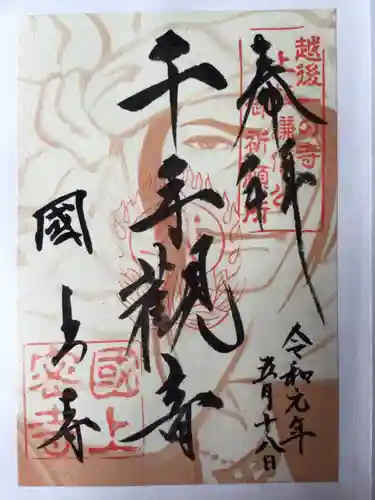 奉拝
越後
上
謙信公
の寺
御祈願所
千手觀音
國上寺
國上
密寺
令和元年
五月十八日